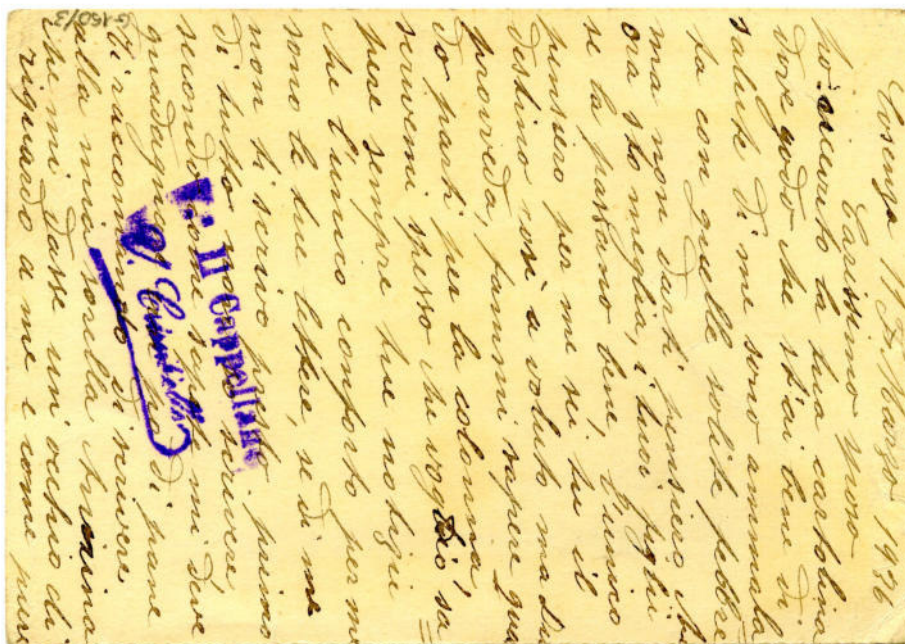 Cosenza 11 Di Marzo 1936
Carissimo
ho ricevuto la tua cartolina
dove godo che stai bene di
salute Di me sono ammala=
ta con quelle solite febbre
ma non darti pensiero che
ora sto meglio, i tuoi figli
se la passano bene, l'unico
pensiero per me sei tu il
destino così à voluto ma Dio
provveda, fammi sapere quan
do parti per la colonia
scrivemi spesso che voglio sa=
pere sempre tue notizie
che l'unico conforto per me
sono le tue lettere, se di me
non ti scrivo
di tutto scrivere
secondo mi deve
guadagnare di pane
Ti raccomando di scrivere
alla mia sorella
che mi dasse un occhio di
riguardo a me e come pure
Il Cappellano
G 160/3